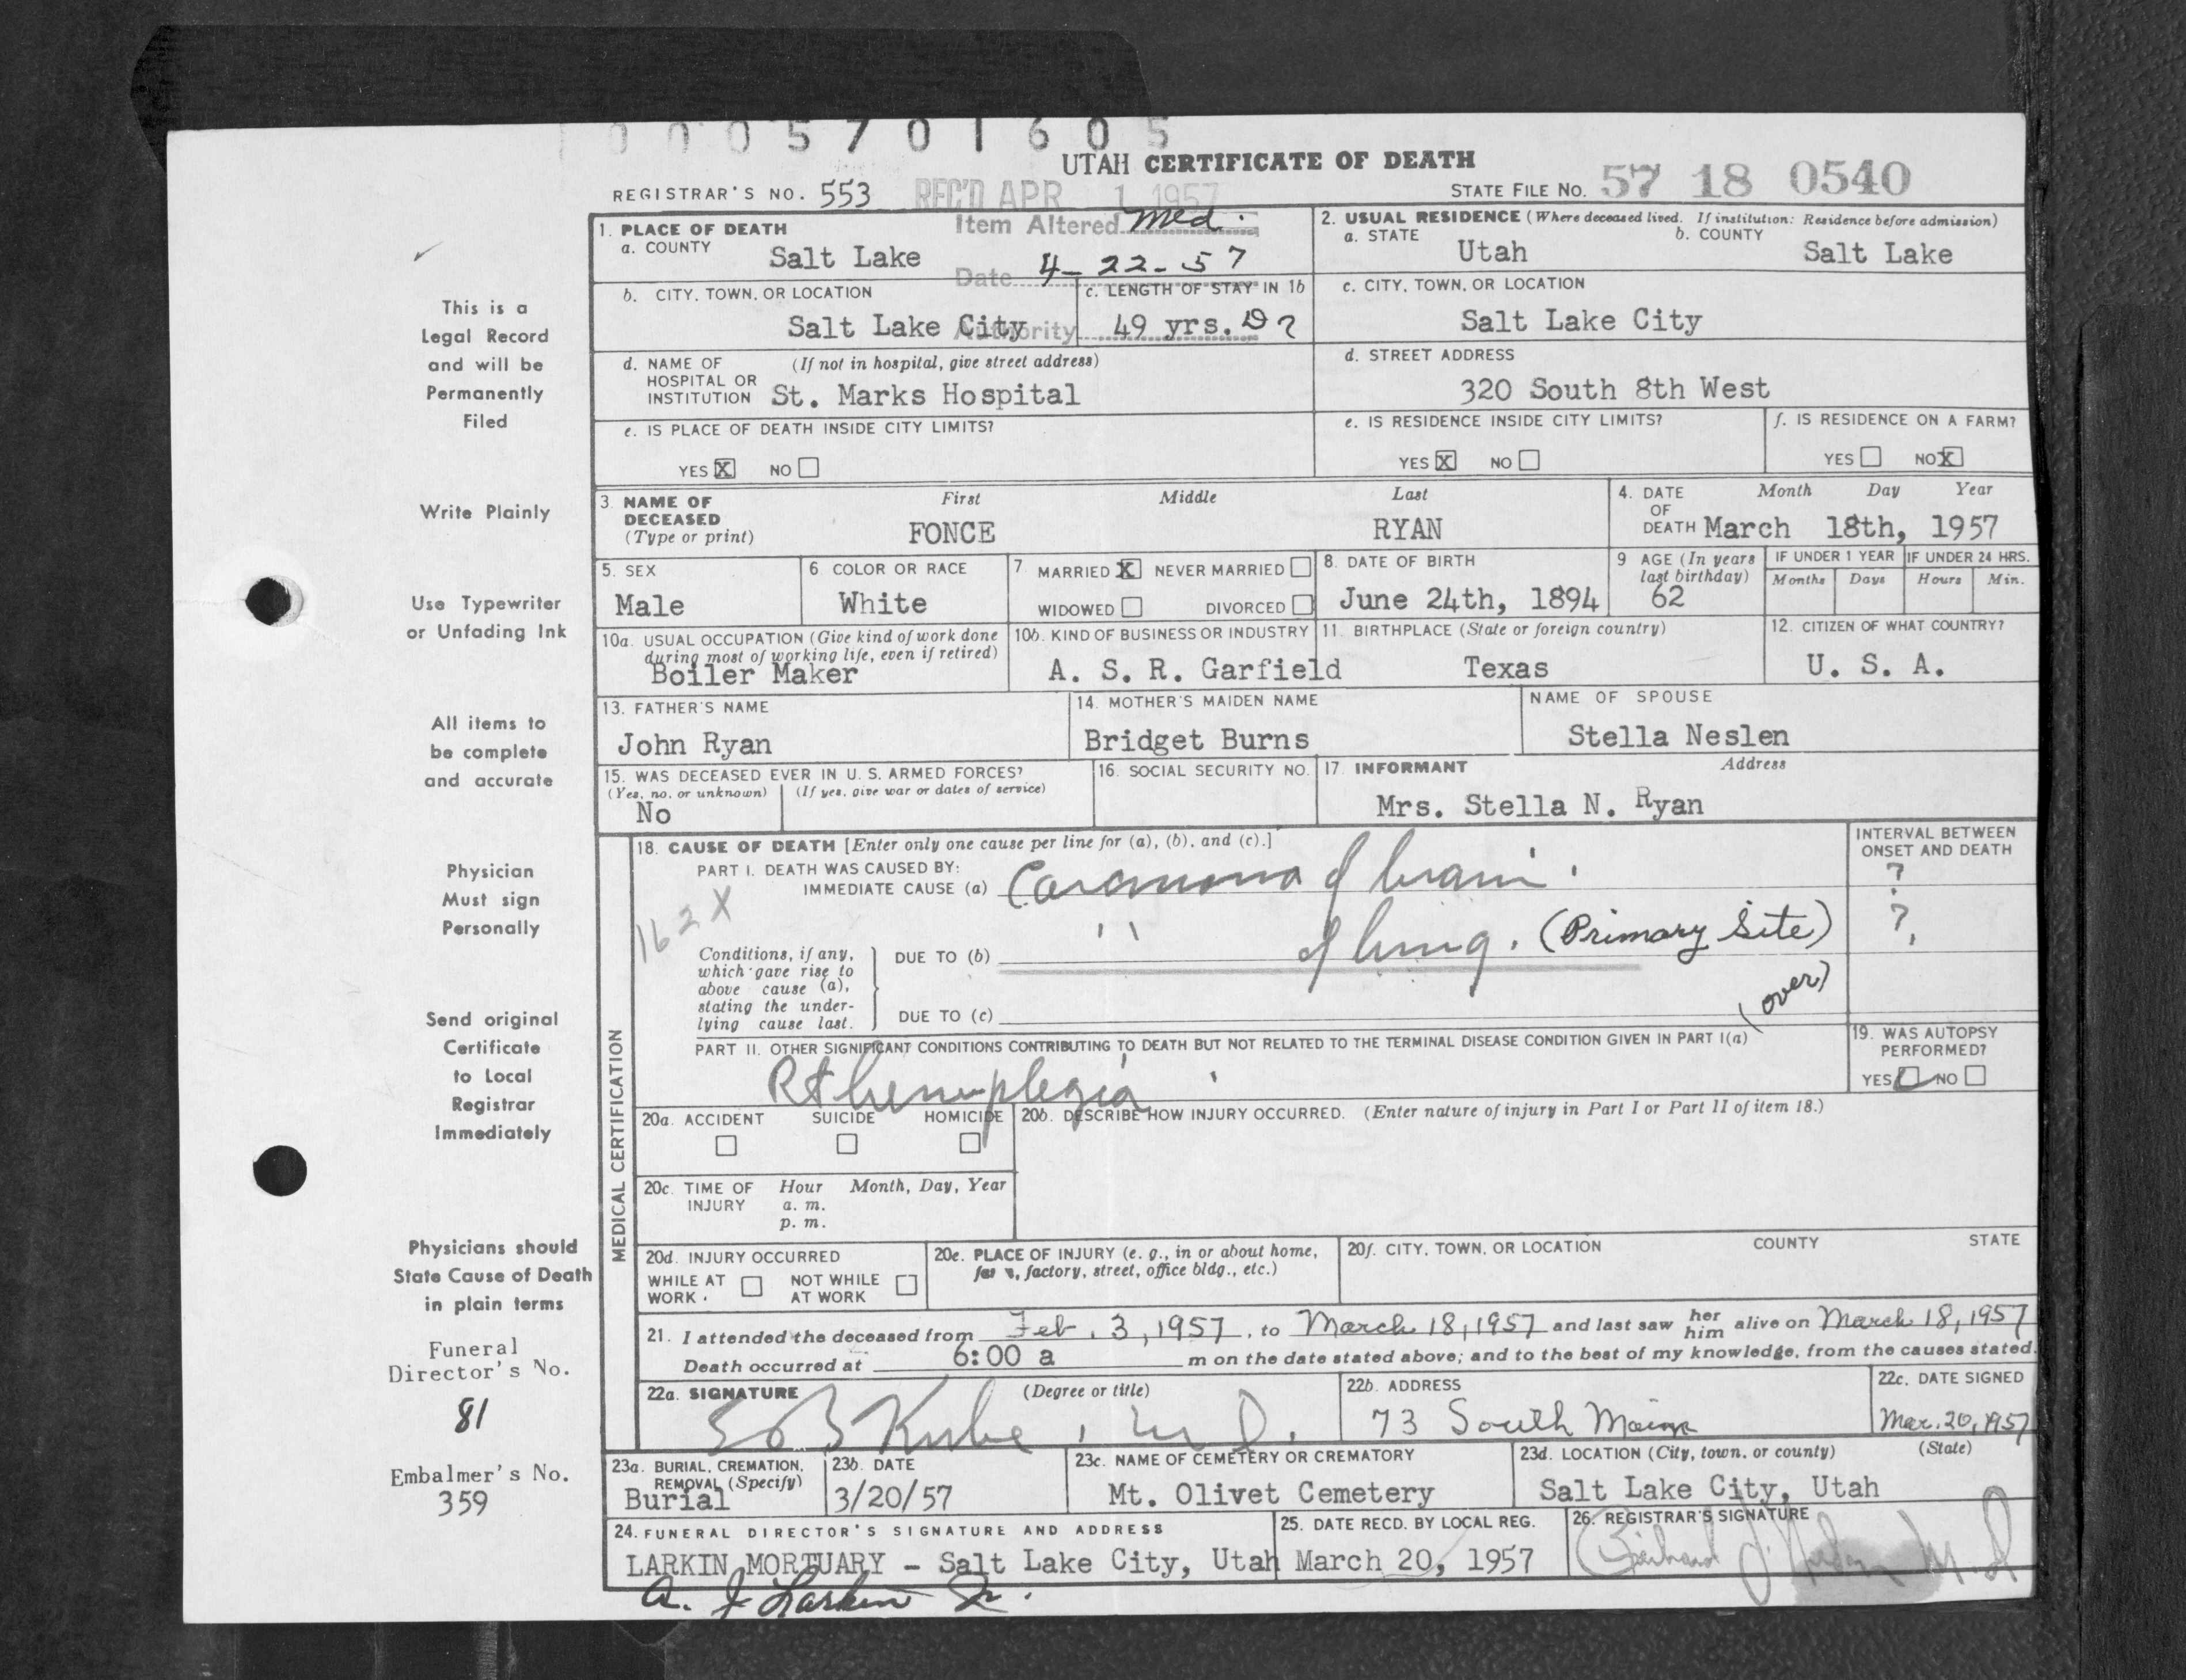 0005701605
UTAH CERTIFICATE OF DEATH
REGISTRAR'S NO. 553 REC'D APR 1 1957 STATE FILE NO. 57 18 0540
This is a
Legal Record
and will be
Permanently
Filed
Write Plainly
Use Typewriter
or Unfading Ink
All items to
be complete
and accurate
Physician
Must sign
Personally
Send original
Certificate
to Local
Registrar
Immediately
Physicians should
State Cause of Death
in plain terms
Funeral
Director's No.
81
Embalmer's No.
359
1. PLACE OF DEATH
a. COUNTY
Salt Lake
Item Altered Med.
Date 4-22-57
Authority
2. USUAL RESIDENCE (Where deceased lived. If institution: Residence before admission)
a. STATE b. COUNTY
Utah Salt Lake
b. CITY, TOWN, OR LOCATION
Salt Lake City
c. LENGTH OF STAY IN 1b
49 yrs.
c. CITY, TOWN, OR LOCATION
Salt Lake City
d. NAME OF (If not in hospital, give street address)
HOSPITAL OR
INSTITUTION St. Marks Hospital
d. STREET ADDRESS
320 South 8th West
e. IS PLACE OF DEATH INSIDE CITY LIMITS?
YES X NO
e. IS RESIDENCE INSIDE CITY LIMITS?
YES X NO
f. IS RESIDENCE ON A FARM?
YES NO X
3. NAME OF
DECEASED
(Type or print)
First Middle Last
FONCE RYAN
4. DATE Month Day Year
OF
DEATH March 18th, 1957
5. SEX
Male
6. COLOR OR RACE
White
7 MARRIED X NEVER MARRIED
WIDOWED DIVORCED
8. DATE OF BIRTH
June 24th, 1894
9 AGE (In years
last birthday)
62
IF UNDER 1 YEAR IF UNDER 24 HRS.
Months Days Hours Min.
10a. USUAL OCCUPATION (Give kind of work done
during most of working life, even if retired)
Boiler Maker
10b. KIND OF BUSINESS OR INDUSTRY
A. S. R. Garfield
11. BIRTHPLACE (State or foreign country)
Texas
12. CITIZEN OF WHAT COUNTRY?
U. S. A.
13. FATHER'S NAME
John Ryan
14. MOTHER'S MAIDEN NAME
Bridget Burns
NAME OF SPOUSE
Stella Neslen
15. WAS DECEASED EVER IN U. S. ARMED FORCES?
(Yes, no, or unknown) (If yes, give war or dates of service)
No
16. SOCIAL SECURITY NO.
17. INFORMANT Address
Mrs. Stella N. Ryan
MEDICAL CERTIFICATION
18. CAUSE OF DEATH [Enter only one cause per line for (a), (b), and (c).]
PART I. DEATH WAS CAUSED BY:
IMMEDIATE CAUSE (a) Carcinoma of brain.
162X
Conditions, if any,
which gave rise to
above cause (a),
stating the under-
lying cause last.
DUE TO (b) " of lung. (Primary Site)
DUE TO (c) (over)
INTERVAL BETWEEN
ONSET AND DEATH
?
?
PART II. OTHER SIGNIFICANT CONDITIONS CONTRIBUTING TO DEATH BUT NOT RELATED TO THE TERMINAL DISEASE CONDITION GIVEN IN PART I(a)
Rt hemiplegia
19. WAS AUTOPSY
PERFORMED?
YES NO
20a. ACCIDENT SUICIDE HOMICIDE
20b. DESCRIBE HOW INJURY OCCURRED. (Enter nature of injury in Part I or Part II of item 18.)
20c. TIME OF Hour Month, Day, Year
INJURY a. m.
p. m.
20d. INJURY OCCURRED
WHILE AT NOT WHILE
WORK AT WORK
20e. PLACE OF INJURY (e. g., in or about home,
farm, factory, street, office bldg., etc.)
20f. CITY, TOWN, OR LOCATION COUNTY STATE
21. I attended the deceased from Feb. 3, 1957, to March 18, 1957 and last saw her him alive on March 18, 1957
Death occurred at 6:00 a m on the date stated above; and to the best of my knowledge, from the causes stated.
22a. SIGNATURE (Degree or title)
M. D.
22b. ADDRESS
73 South Main
22c. DATE SIGNED
Mar. 20, 1957
23a. BURIAL, CREMATION,
REMOVAL (Specify)
Burial
23b. DATE
3/20/57
23c. NAME OF CEMETERY OR CREMATORY
Mt. Olivet Cemetery
23d. LOCATION (City, town, or county) (State)
Salt Lake City, Utah
24. FUNERAL DIRECTOR'S SIGNATURE AND ADDRESS
LARKIN MORTUARY - Salt Lake City, Utah
A. J Larkin Jr.
25. DATE RECD. BY LOCAL REG.
March 20, 1957
26. REGISTRAR'S SIGNATURE
M.D.